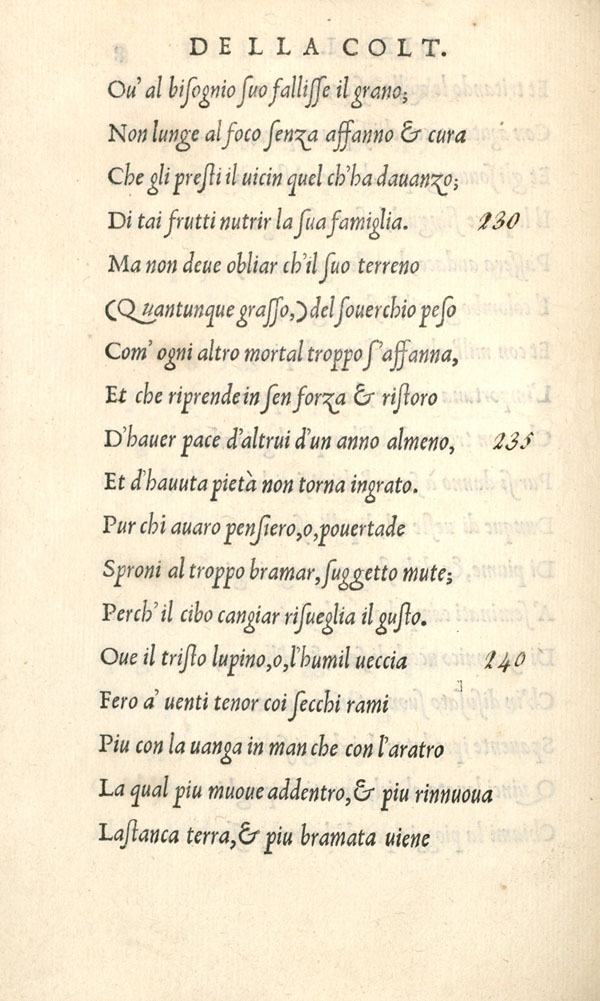 DELLA COLT.
Ou' al biſognio ſuo falliſſe il grano;
Non lunge al foco ſenza affanno & cura
Che gli preſti il uicin quel ch'ha dauanzo;
Di tai frutti nutrir la ſua famiglia. 230
Ma non deue obliar ch'il ſuo terreno
(Quantunque graſſo,) del ſouerchio peſo
Com' ogni altro mortal troppo s'affanna,
Et che riprende in ſen forza & riſtoro
D'hauer pace d'altrui d'un anno almeno, 235
Et d'hauuta pietà non torna ingrato.
Pur chi auaro penſiero, o, pouertade
Sproni al troppo bramar, ſuggetto mute;
Perch' il cibo cangiar riſueglia il guſto.
Oue il triſto lupino, o, l'humil ueccia 240
Fero a' uenti tenor coi ſecchi rami
Piu con la uanga in man che con l'aratro
La qual piu muoue addentro, & piu rinnuoua
Laſtanca terra, & piu bramata uiene